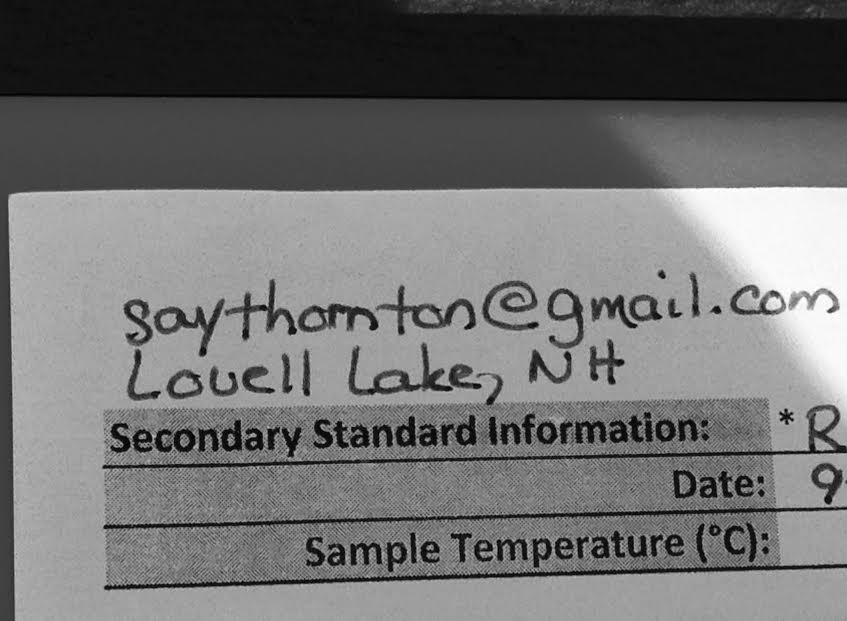 saythornton@gmail.com
Lovell Lake, NH
Secondary Standard Information: * R
Date: 9
Sample Temperature (°C):